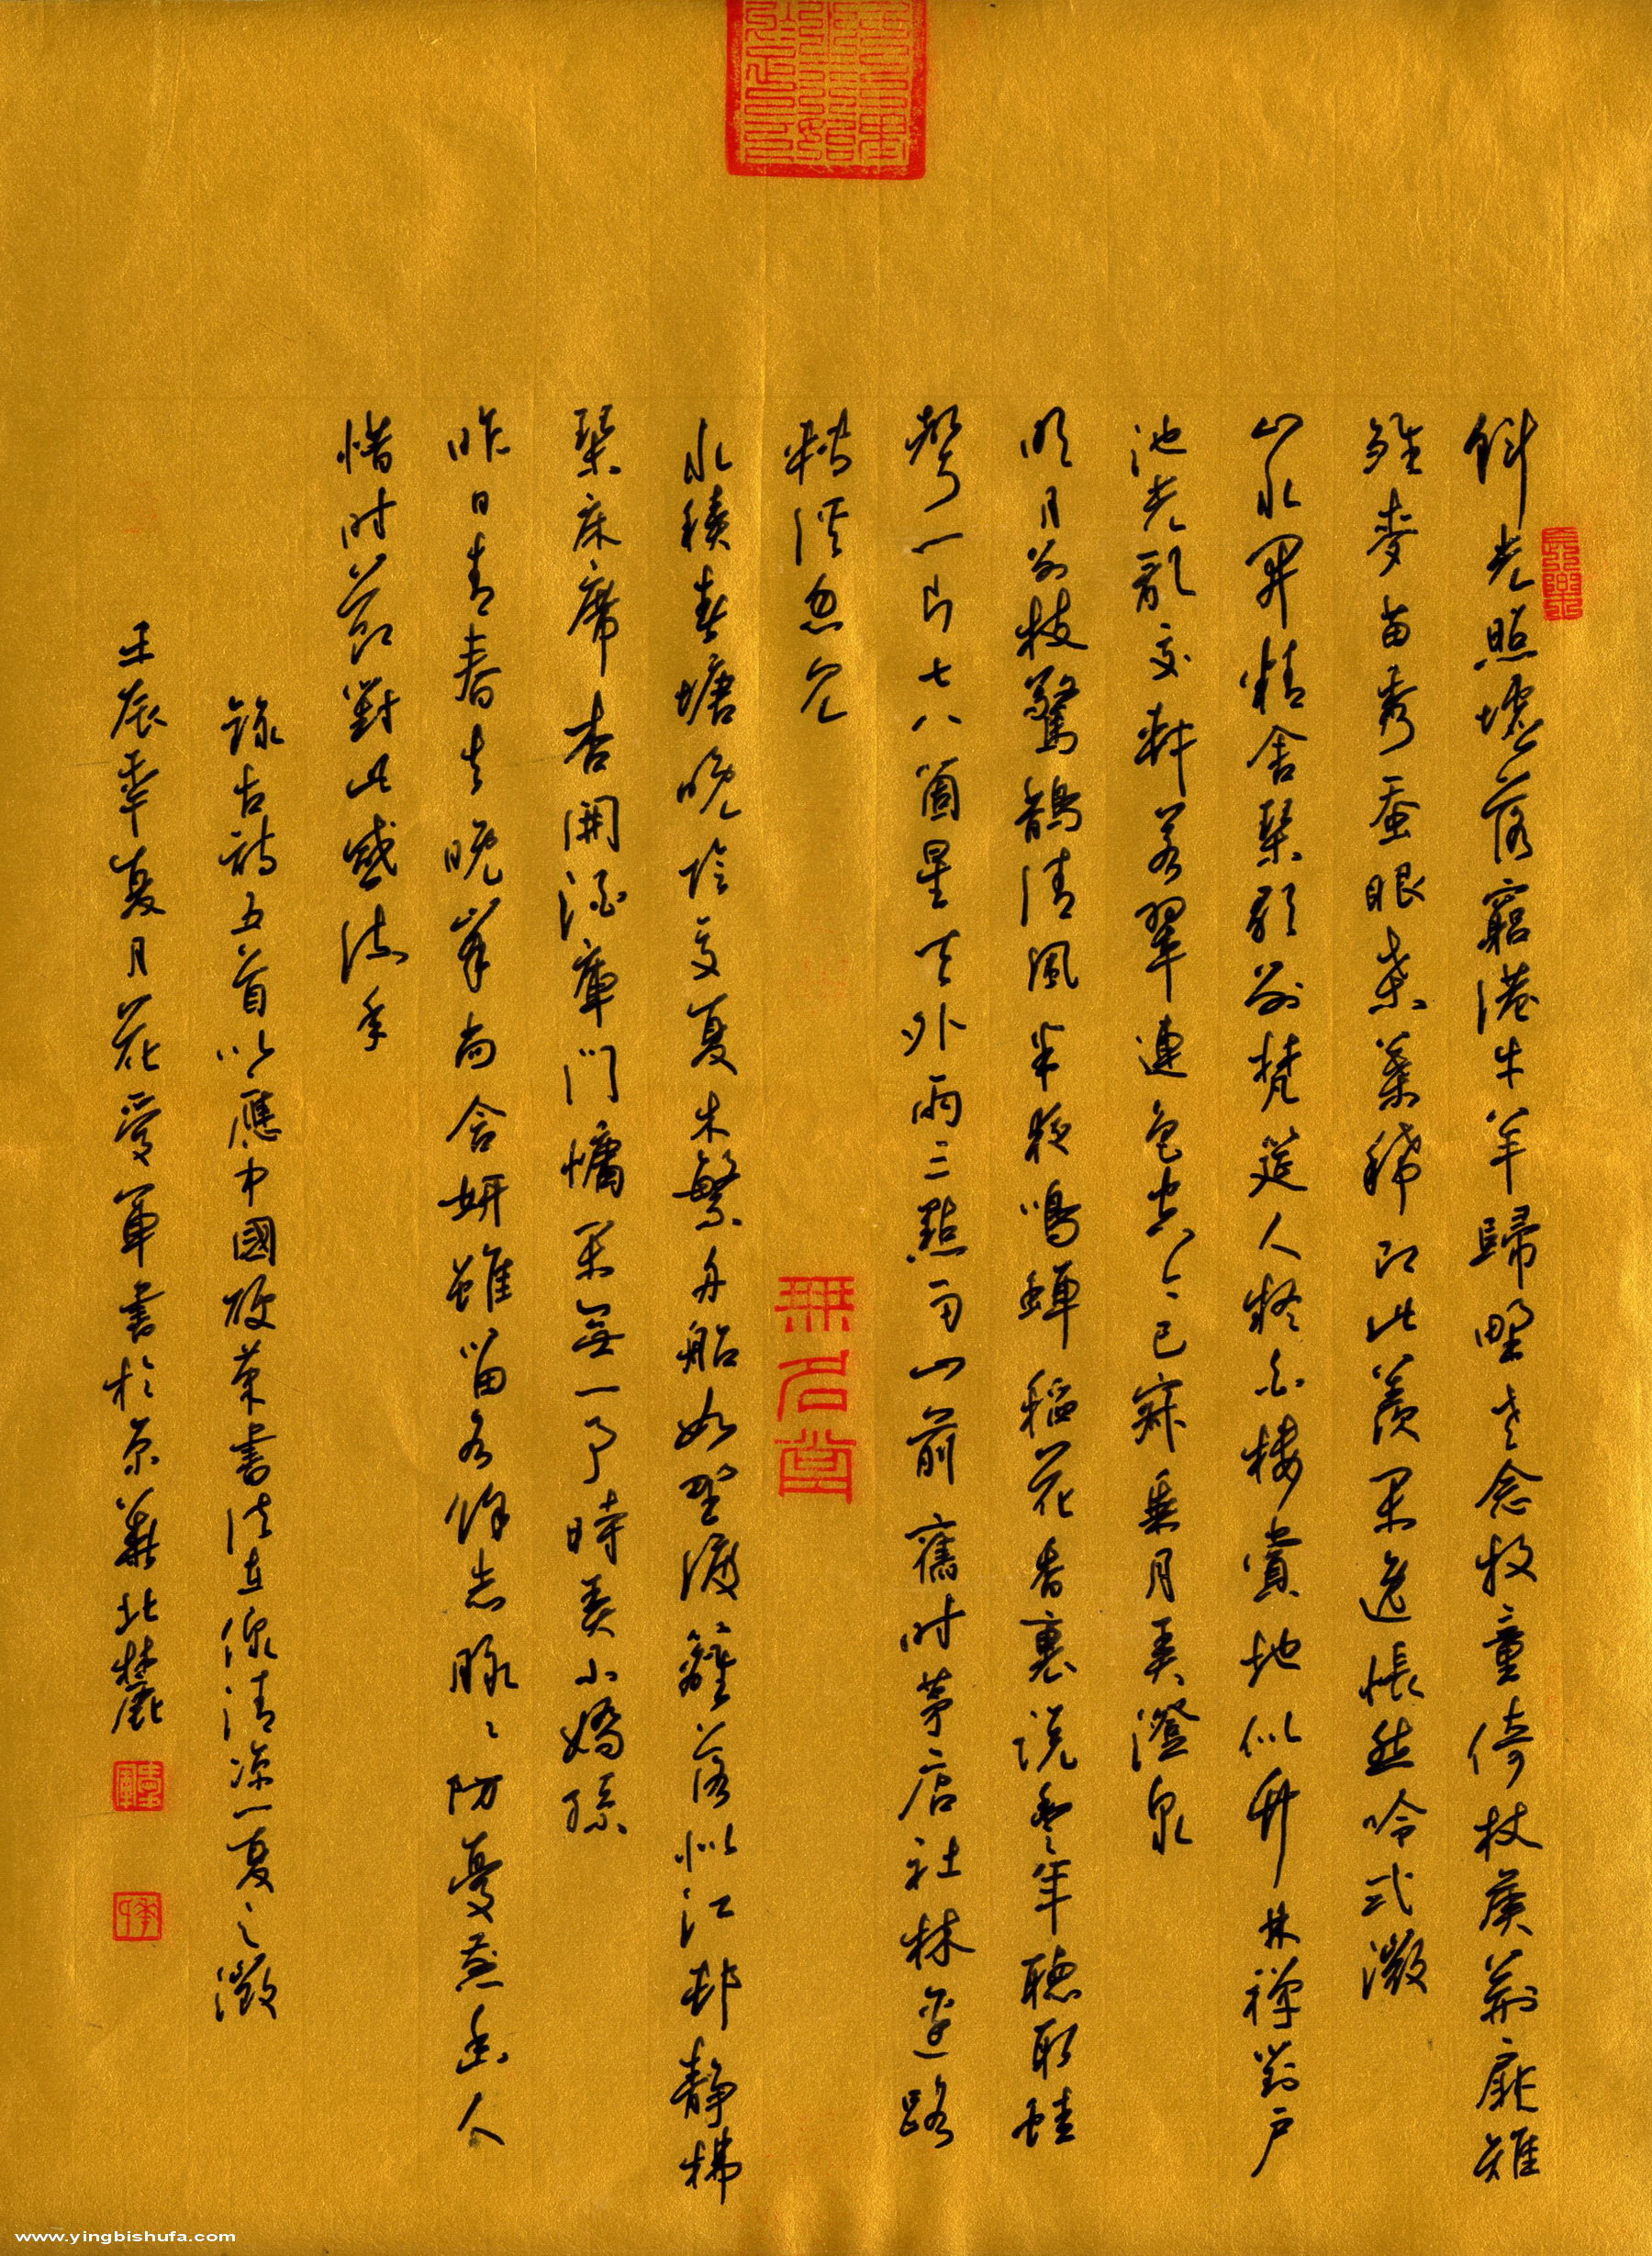 斜光照墟落窮港牛羊歸野老念牧童倚杖候荊扉雉
雊麥苗秀蚕眠桑葉稀即此羨閑逸悵然吟式微
山水開精舍琴歌列梵筵人疑白樓賞地似竹林禪對戶
池光亂交軒岩翠連色空今已寂乘月弄澄泉
明月別枝驚鵲清風半夜鳴蟬稻花香裏說豐年聽取蛙
聲一片七八箇星天外兩三點雨山前舊時茅店社林邊路
轉溪忽見
無名堂
水積春塘晚陰交夏木繁舟船如野渡籬落似江邨靜拂
琴床席香開酒庫門慵閑無一事時弄小嬌孫
昨日青春去晚峯尚含妍雖留有餘態脉〻防憂煎幽人
惜时節對此感流年
錄古詩五首以應中國硬筆書法在線清凉一夏之徵
壬辰年夏月花愛軍書於京華北麓
www.yingbishufa.com